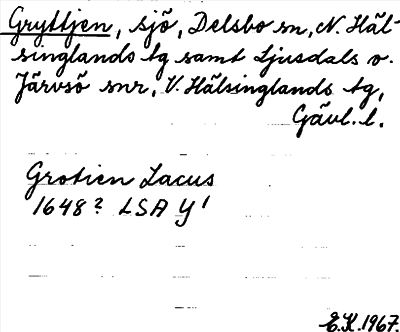 Gryttjen, sjö, Delsbo sn, N. Häl-
singlands tg samt Ljusdals o.
Järvsö snr, V. Hälsinglands tg,
Gävl. l.
Grotien Lacus
1648? LSA Y¹
E.K. 1967.